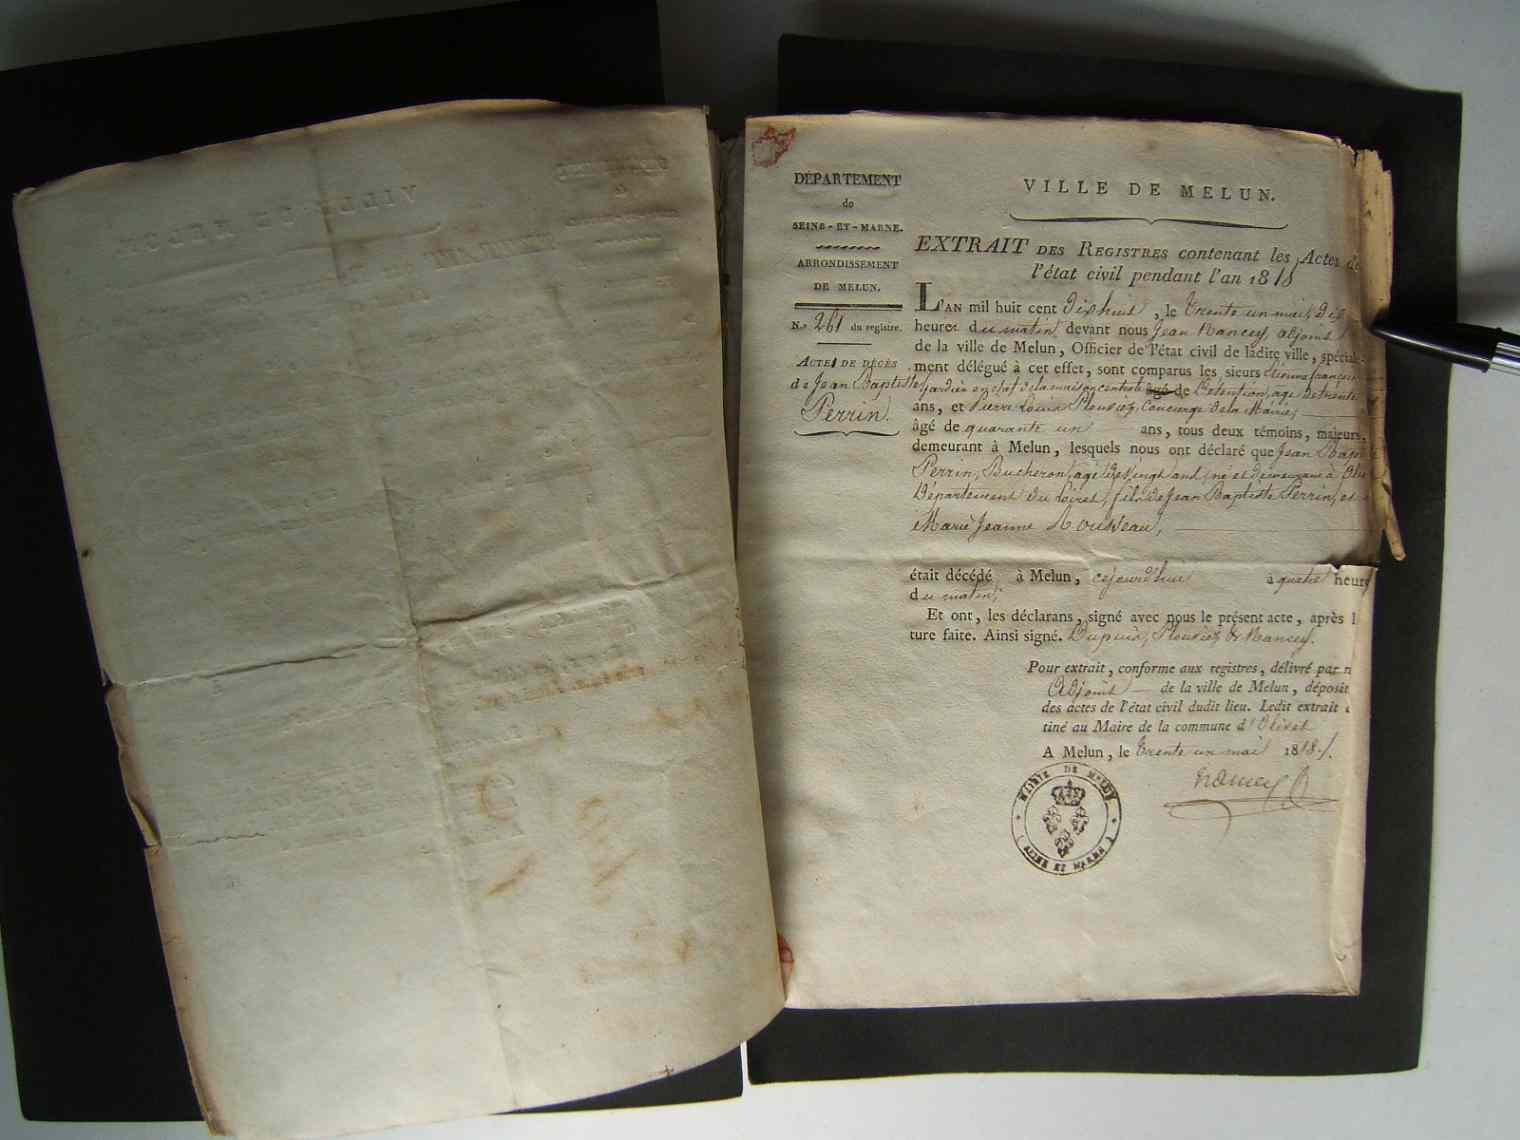 DÉPARTEMENT
de
SEINE-ET-MARNE.
ARRONDISSEMENT
DE MELUN.
N.º 261 du registre.
ACTES DE DÉCÈS
de Jean Baptiste
Perrin.
VILLE DE MELUN.
EXTRAIT DES REGISTRES contenant les Actes de
l'état civil pendant l'an 1818
L'AN mil huit cent dix huit, le trente un mai, dix
heures du matin devant nous Jean Nancey, adjoint
de la ville de Melun, Officier de l'état civil de ladite ville, spéciale-
ment délégué à cet effet, sont comparus les sieurs Etienne françois
gardien en chef de la maison centrale âgé de Détention, age de trente
ans, et Pierre Louis Plouviez, Concierge de la Mairie,
âgé de quarante un ans, tous deux témoins, majeurs,
demeurant à Melun, lesquels nous ont déclaré que Jean Baptiste
Perrin, Bucheron, agé de vingt ans, né et demeurant à
Département du Loiret, fils de Jean Baptiste Perrin, et
Marie Jeanne Rousseau,
était décédé à Melun, cejourd'hui à quatre heures
du matin;
Et ont, les déclarans, signé avec nous le présent acte, après l
ture faite. Ainsi signé. Dupuis, Plouviez & Nancey.
Pour extrait, conforme aux registres, délivré par n
Adjoint de la ville de Melun, déposit
des actes de l'état civil dudit lieu. Ledit extrait
tiné au Maire de la commune d'Olivet
A Melun, le trente un mai 1818./.
Nancey
MAIRIE DE MELUN
(SEINE ET MARNE)